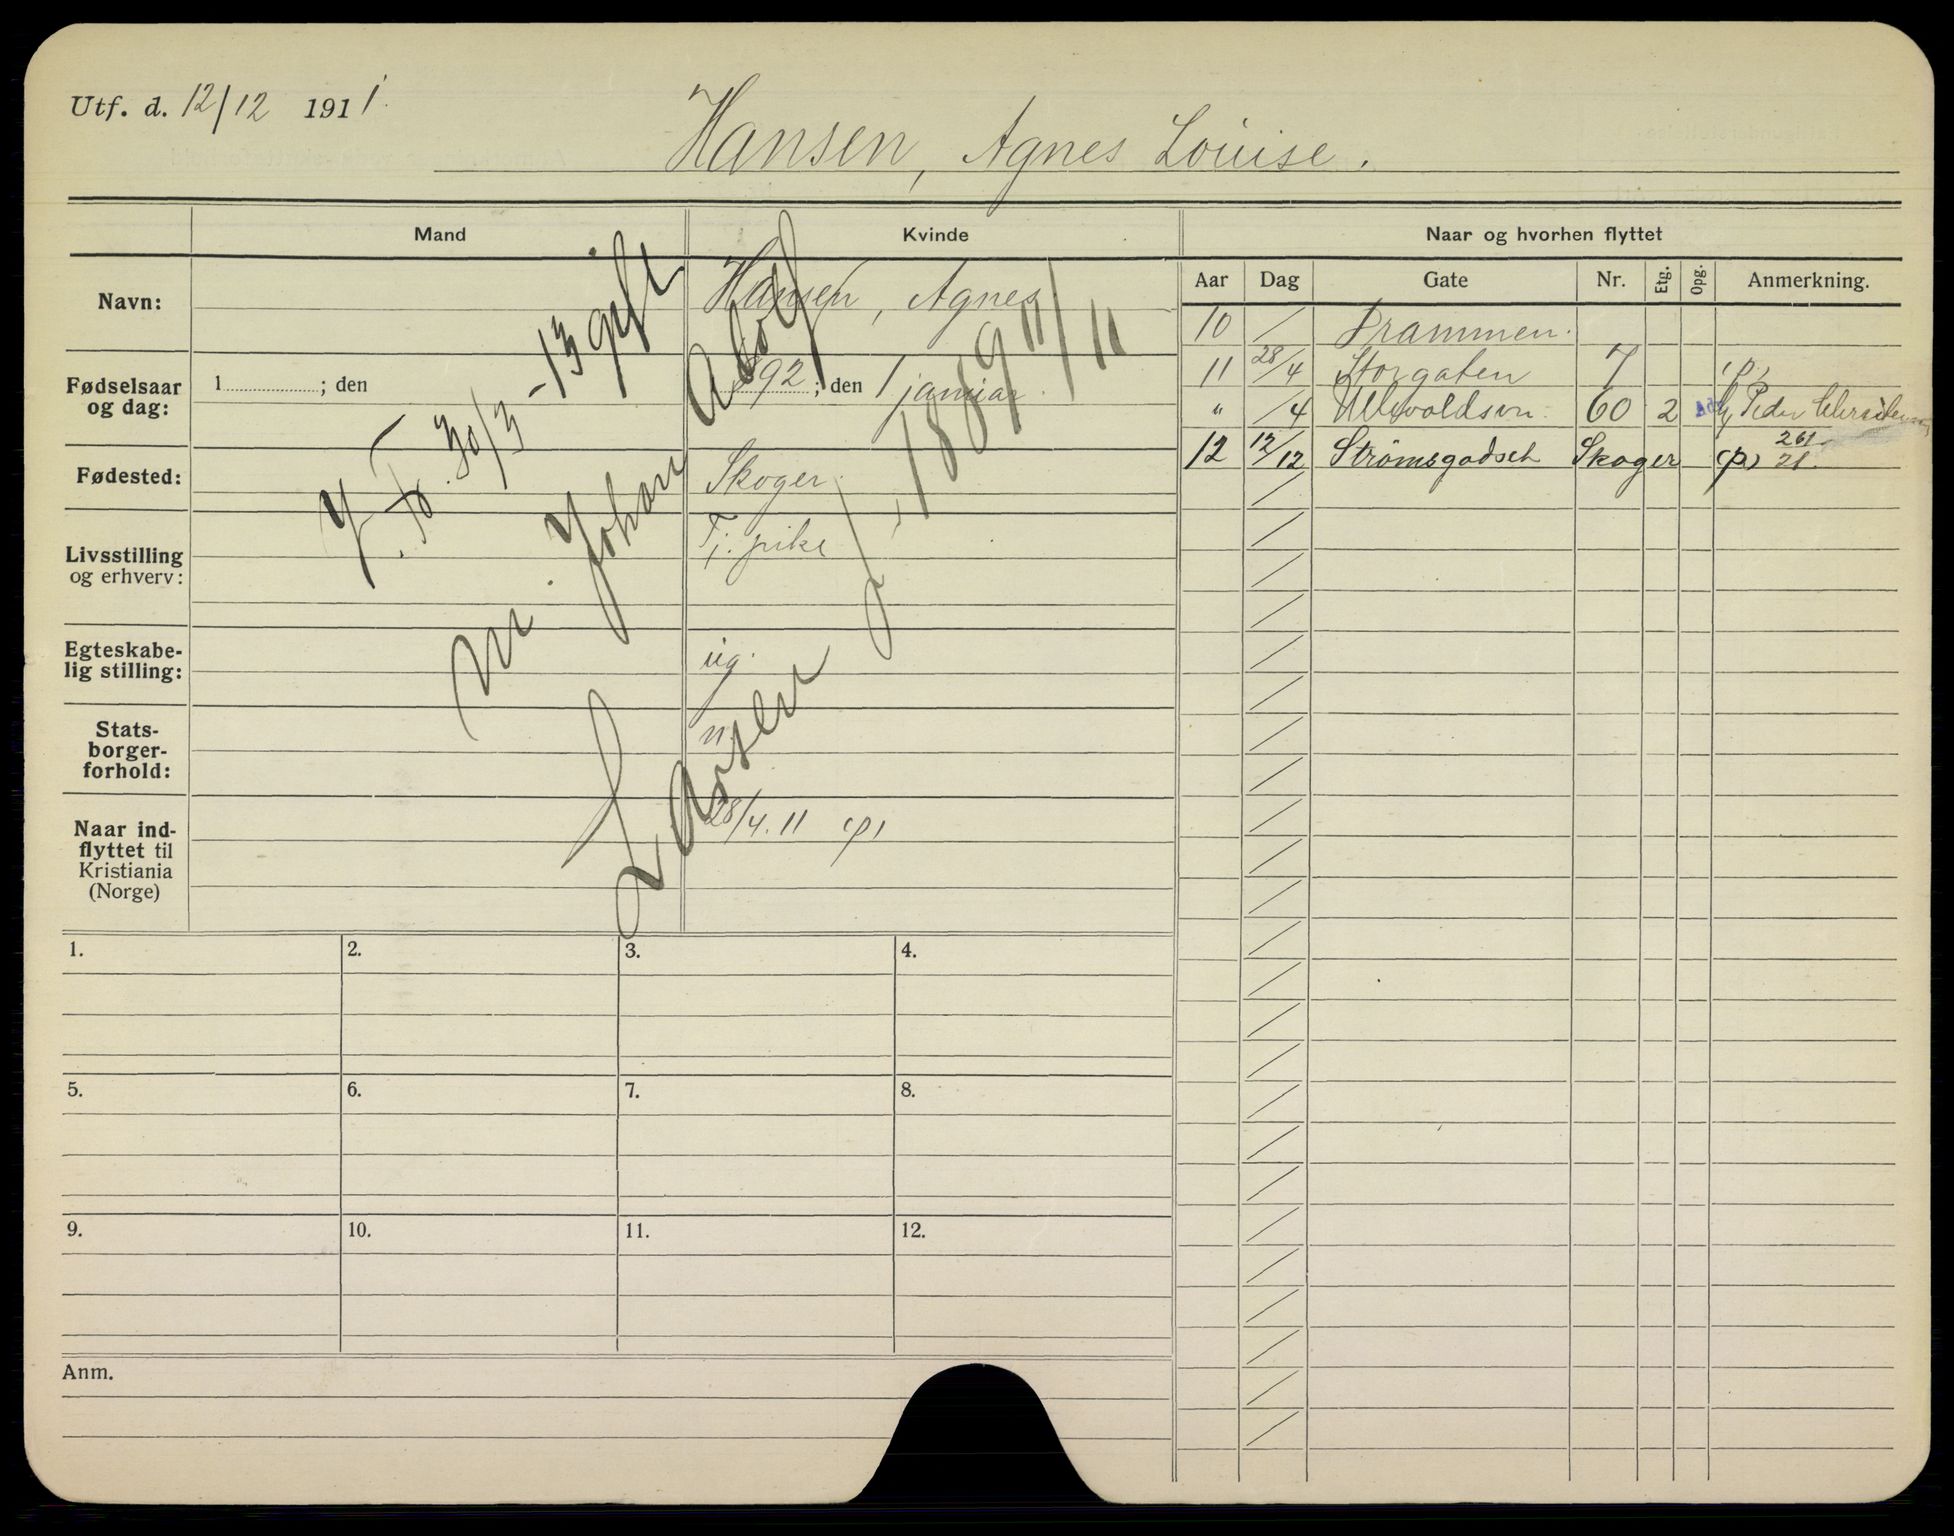 Utf. d. 12/12 1911.
Hansen, Agnes Louise.
Mand
Kvinde
Navn:
Hansen, Agnes
Fødselsaar og dag:
1 ; den
892 ; den 1 januar
Fødested:
Skoger
Livsstilling og erhverv:
Tj. pike
Egteskabe-
lig stilling:
ug.
Stats-
borger-
forhold:
n.
Naar ind-
flyttet til
Kristiania
(Norge)
28/4. 11 (p)
30/3 - 13 gift
m. Johan Adolf
Larsen f. 1889 11/11
Naar og hvorhen flyttet
Aar Dag Gate Nr. Etg. Opg. Anmerkning.
10 / Drammen.
11 28/4 Storgaten 7 (p)
" /4 Ullevoldsvn. 60 2 Peder
12 12/12 Strømsgodset Skoger (p) 261 21.
1. 2. 3. 4.
5. 6. 7. 8.
9. 10. 11. 12.
Anm.